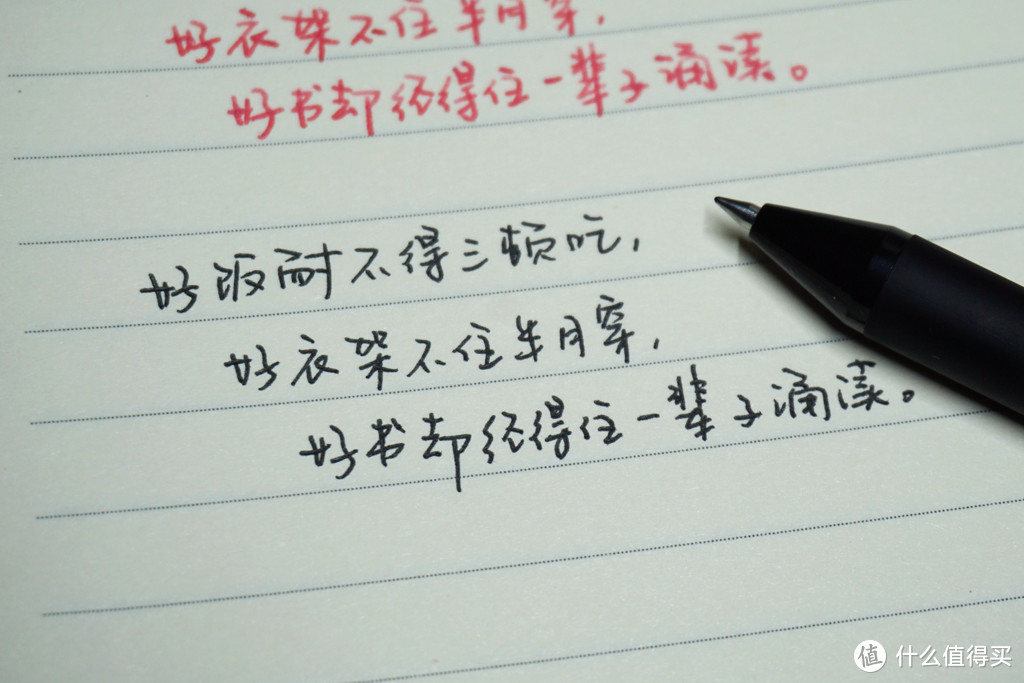 好衣架不住半月穿,
好书却经得住一辈子诵读。
好饭耐不得三顿吃,
好衣架不住半月穿,
好书却经得住一辈子诵读。
值 什么值得买